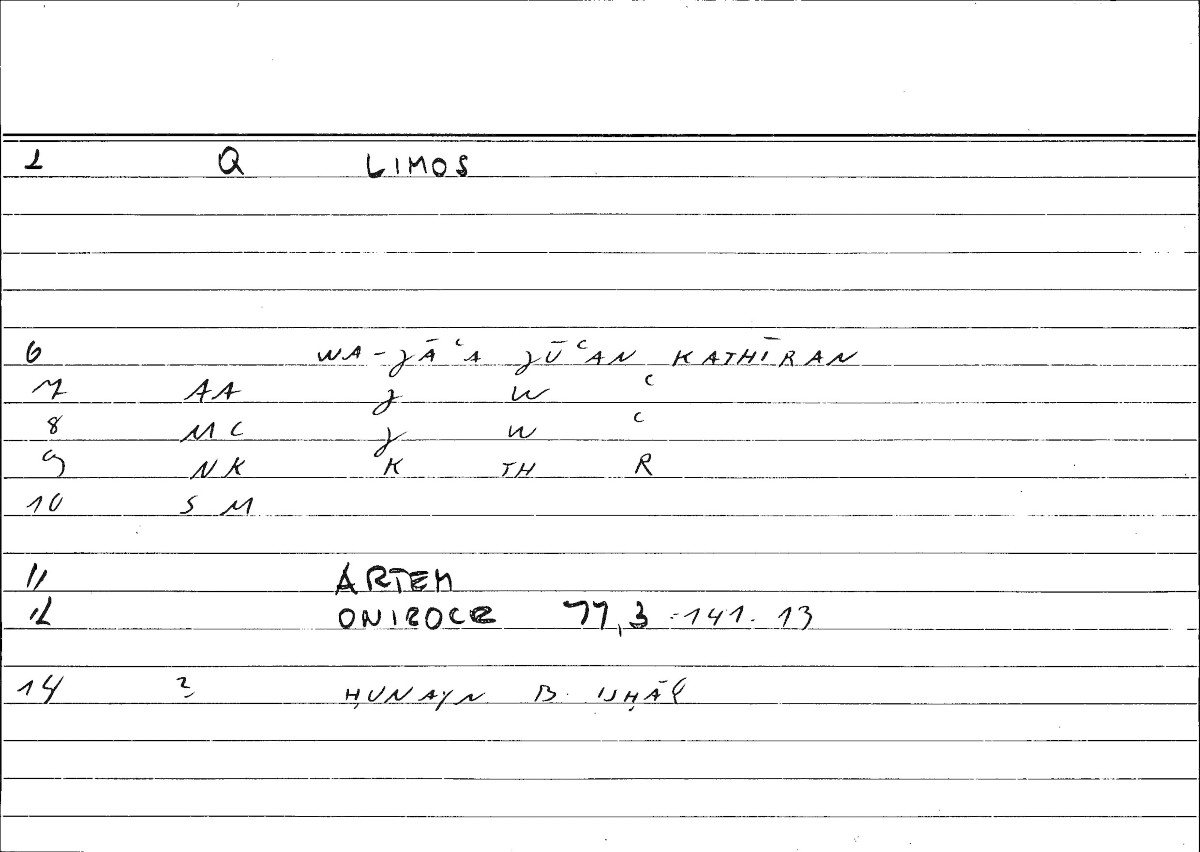 1 Q LIMOS
6 WA-JĀʿA JŪʿAN KATHĪRAN
7 AA J W ʿ
8 MC J W ʿ
9 NK K TH R
10 SM
11 ARTEM
12 ONIROCR 77,3 - 141.13
14 ? ḤUNAYN B. ISḤĀQ